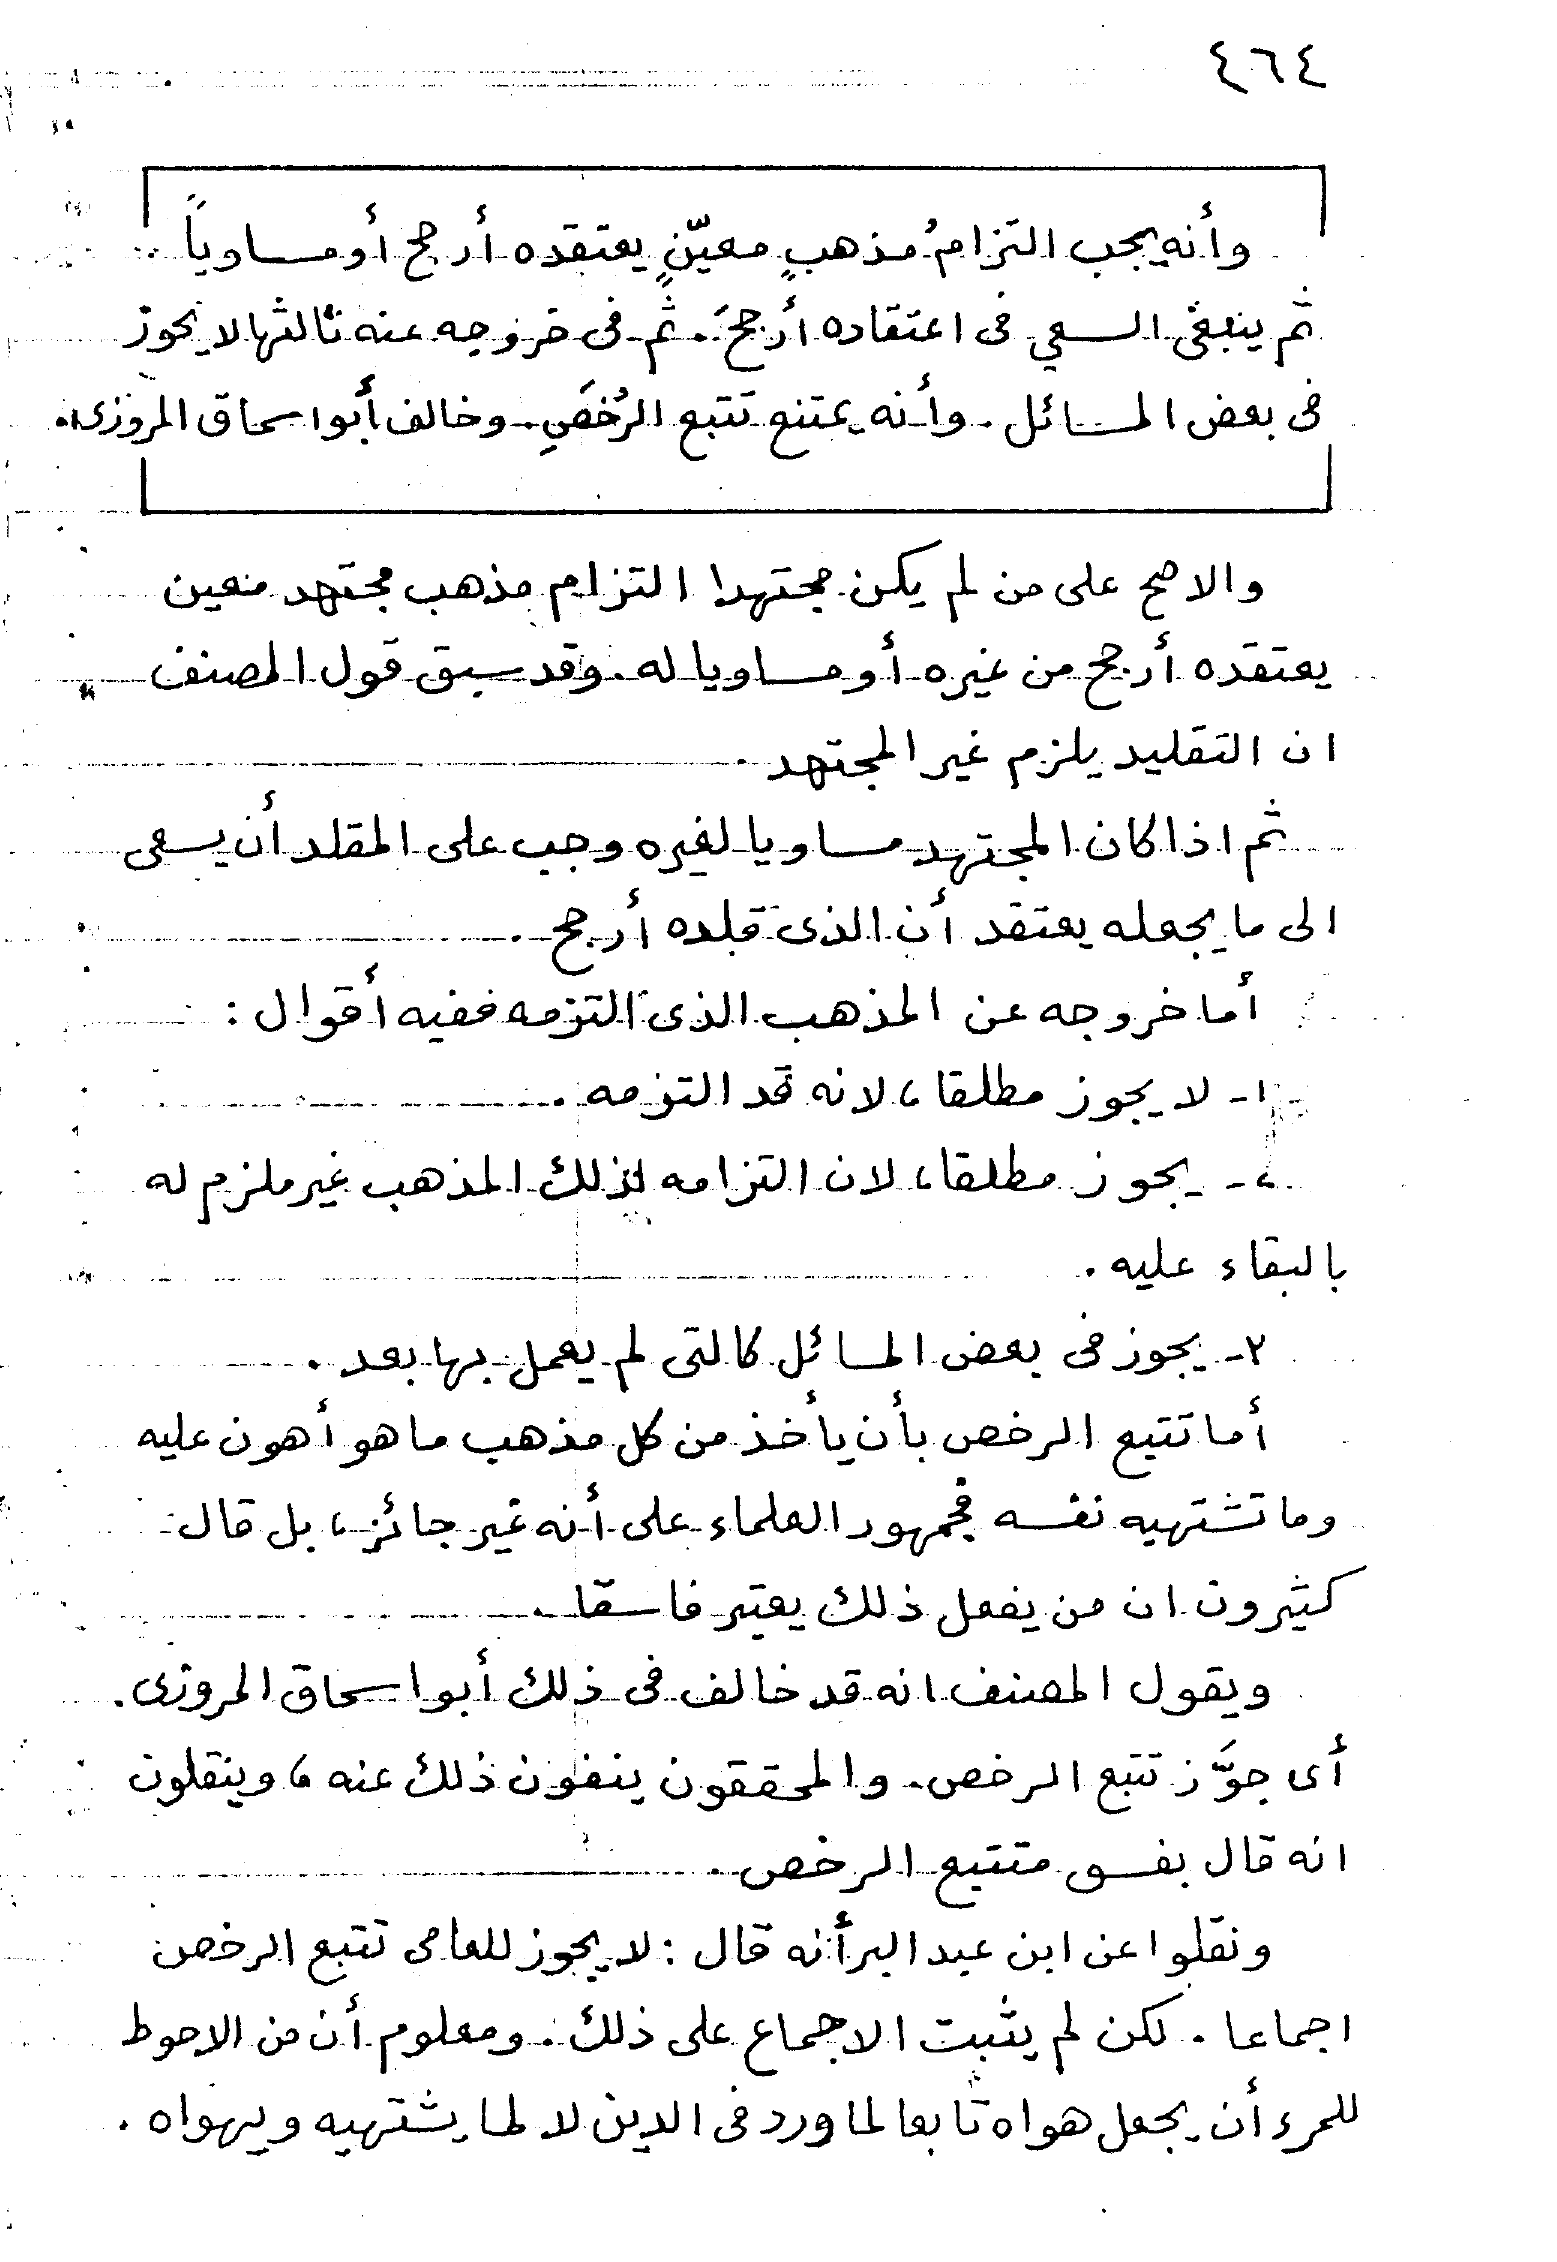 ٤٦٤
وأنه يجب التزامُ مذهبٍ معيّنٍ يعتقده أرجح أو مساوياً
ثم ينبغى السعي فى اعتقاده أرجحَ. ثم فى خروجه عنه ثالثها لا يجوز
فى بعض المسائل. وأنه يمتنع تتبع الرُخَصِ. وخالف أبو اسحاق المروزى.
والاصح على من لم يكن مجتهدا التزام مذهب مجتهد معين
يعتقده أرجح من غيره أو مساويا له. وقد سبق قول المصنف
ان التقليد يلزم غير المجتهد.
ثم اذا كان المجتهد مساويا لغيره وجب على المقلد أن يسعى
الى ما يجعله يعتقد أن الذى قلده أرجح.
أما خروجه عن المذهب الذى التزمه ففيه أقوال:
١- لا يجوز مطلقا، لانه قد التزمه.
٢- يجوز مطلقا، لان التزامه لذلك المذهب غير ملزم له
بالبقاء عليه.
٣- يجوز فى بعض المسائل كالتى لم يعمل بها بعد.
أما تتبع الرخص بأن يأخذ من كل مذهب ما هو أهون عليه
وما تشتهيه نفسه فجمهور العلماء على أنه غير جائز، بل قال
كثيرون ان من يفعل ذلك يعتبر فاسقا.
ويقول المصنف انه قد خالف فى ذلك أبو اسحاق المروزى.
أى جوَّز تتبع الرخص. والمحققون ينفون ذلك عنه، وينقلون
انه قال بفسق متتبع الرخص.
ونقلوا عن ابن عبد البر أنه قال: لا يجوز للعامى تتبع الرخص
اجماعا. لكن لم يثبت الاجماع على ذلك. ومعلوم أن من الاحوط
للمرء أن يجعل هواه تابعا لما ورد فى الدين لا لما يشتهيه ويهواه.